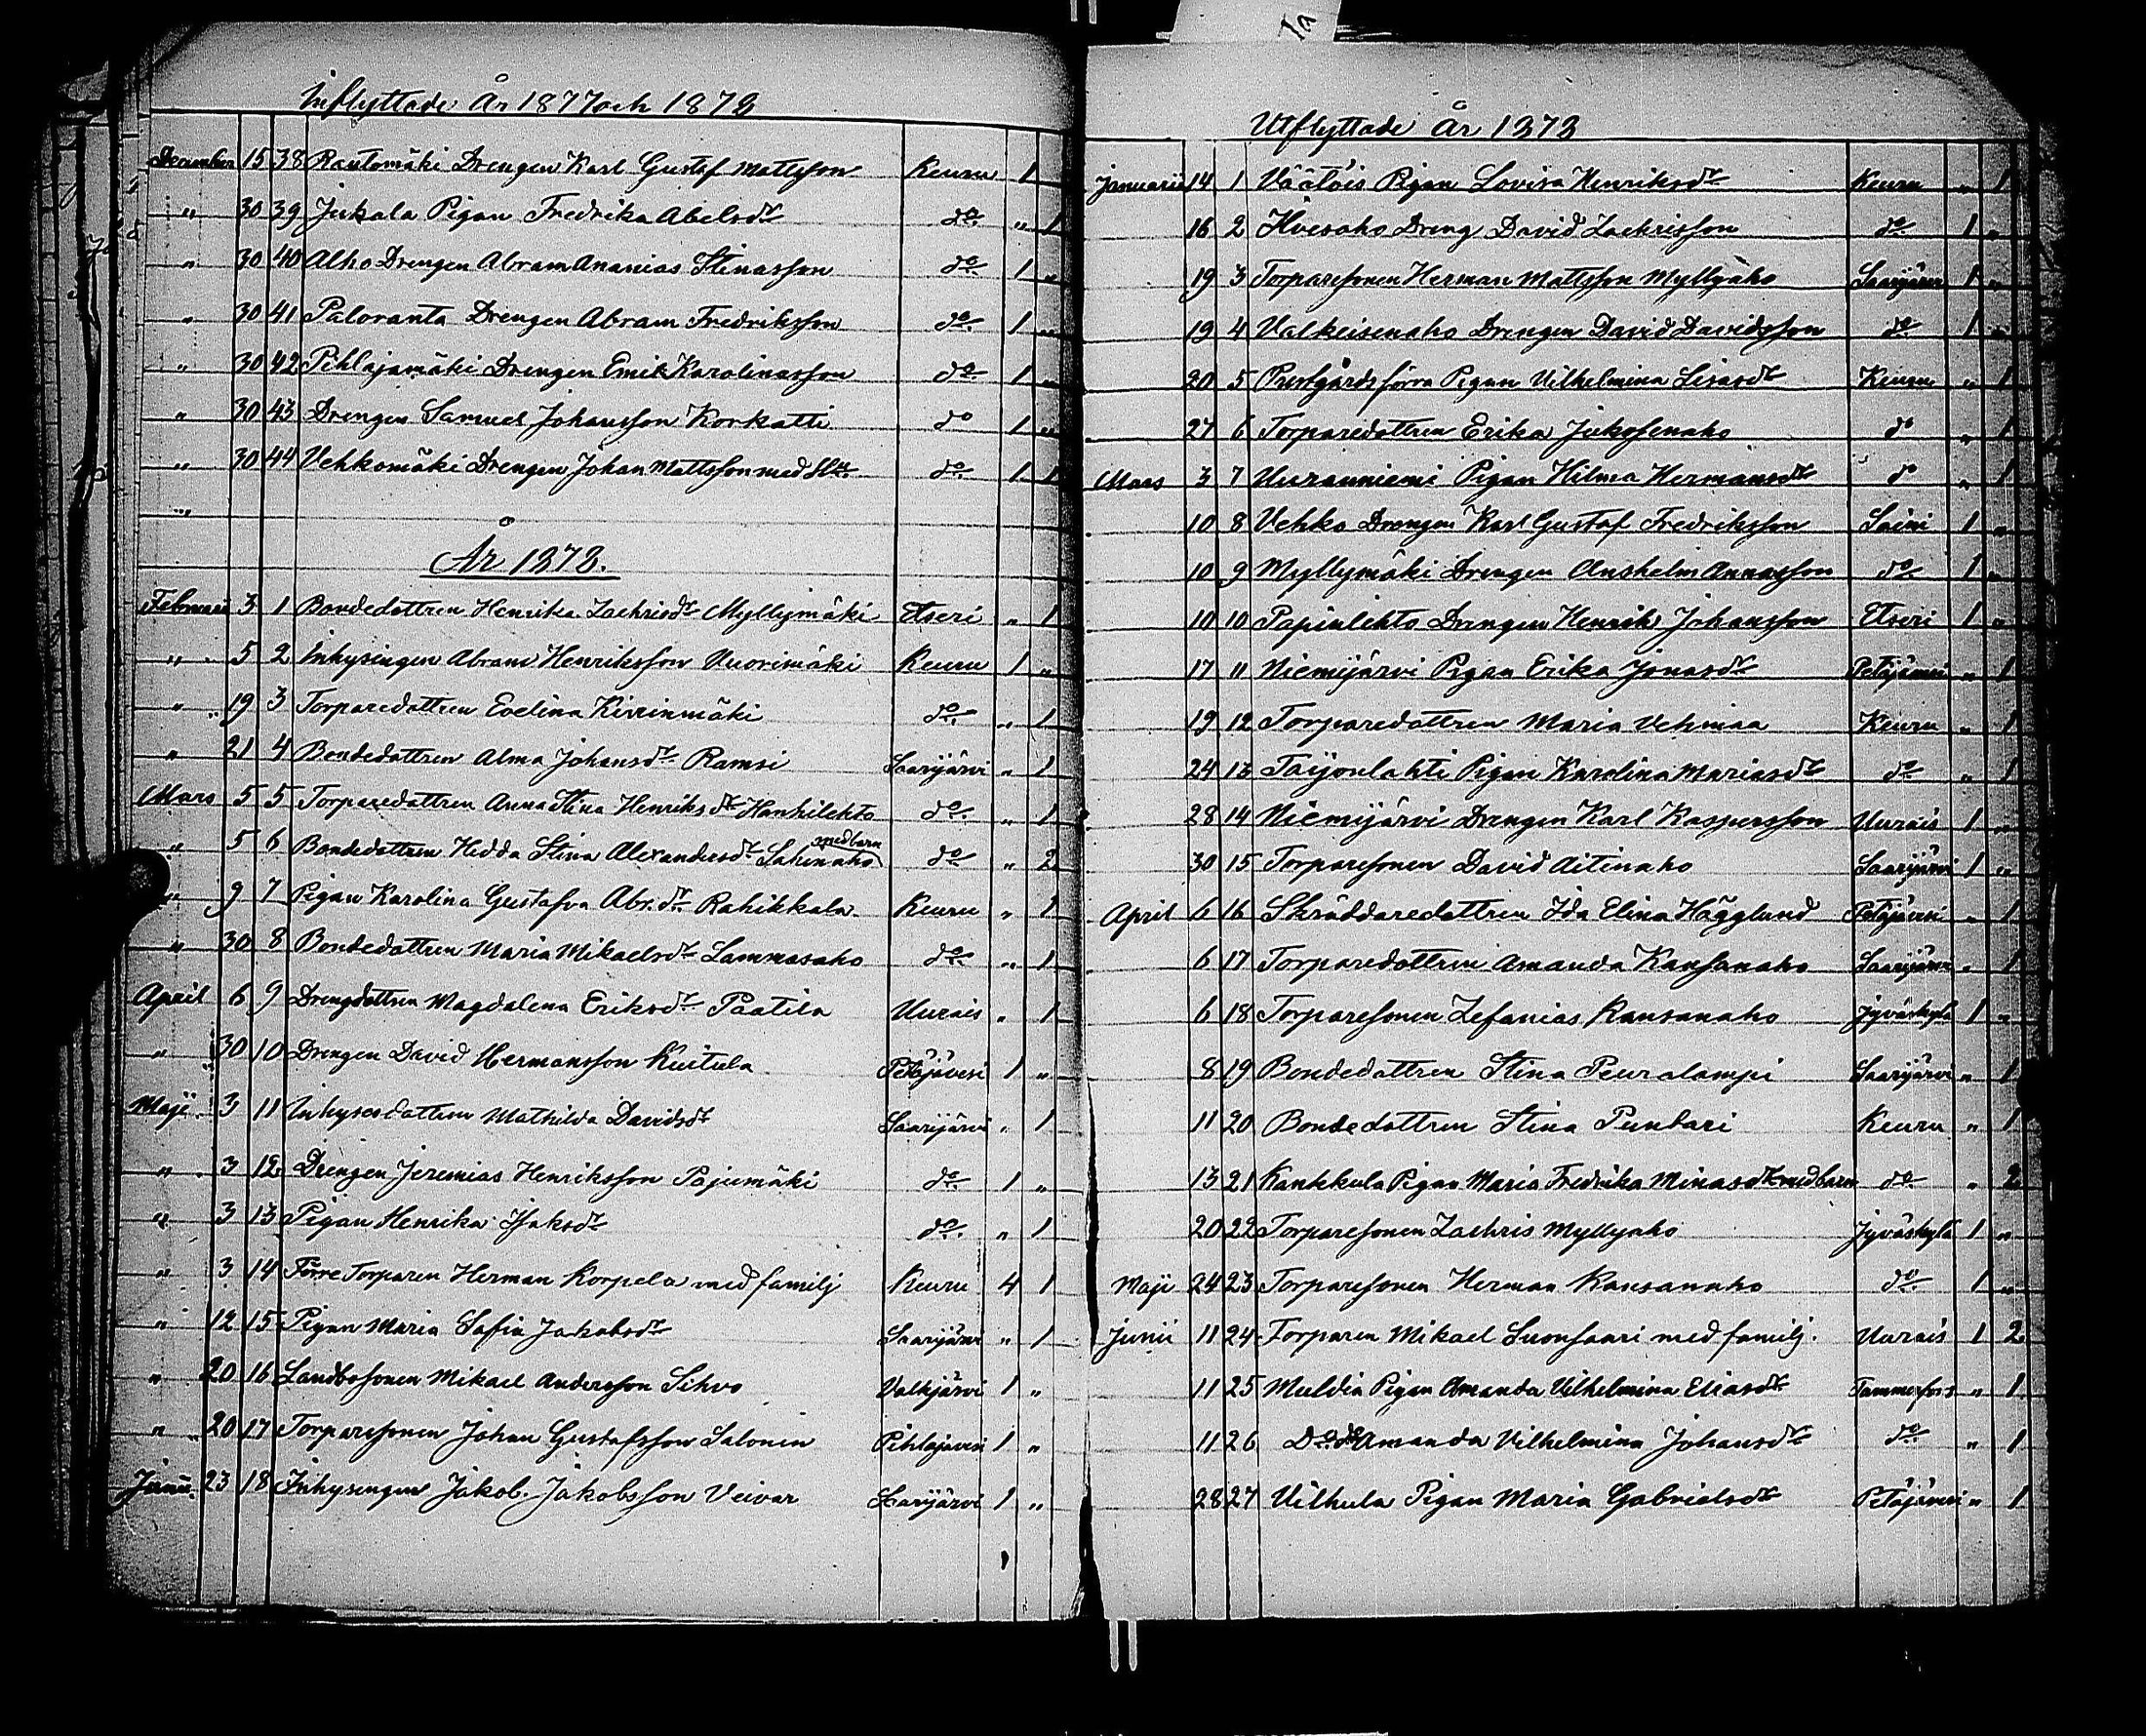 Inflyttade År 1877 och 1878
December 15 38 Rautomäki Drengen Karl Gustaf Mattsson Keuru 1
" 30 39 Jukala Pigan Fredrika Abelsdr do " 1
" 30 40 Alho Drengen Abram Ananias Stinasson do 1 "
" 30 41 Paloranta Drengen Abram Fredriksson do 1 "
" 30 42 Pihlajamäki Drengen Emil Karolinasson do 1 "
" 30 43 Drengen Samuel Johansson Korkatti do 1 "
" 30 44 Vehkomäki Drengen Johan Mattsson med Hu do 1 1
"
År 1878.
Februari 3 1 Bondedottren Henrika Zachrisdr Myllymäki Etseri " 1
" 5 2 Inhysingen Abram Henriksson Vuorimäki Keuru 1 "
" 19 3 Torparedottren Evelina Kivrinmäki do " 1
" 21 4 Bondedottren Alma Johansdr Ramsi Saarijärvi " 1
Mars 5 5 Torparedottren Anna Stina Henriksdr Hanhilehto do " 1
" 5 6 Bondedottren Hedda Stina Alexandersdr Lahinaho med barn do " 2
" 9 7 Pigan Karolina Gustafva Abr.dr Rahikkala Keuru " 1
" 30 8 Bondedottren Maria Mikaelsdr Lammasaho do " 1
April 6 9 Drengdottren Magdalena Eriksdr Paatila Uurais " 1
" 30 10 Drengen David Hermansson Kuitula Petäjävesi 1 "
Maji 3 11 Inhysesdottren Mathilda Davidsdr Saarijärvi " 1
" 3 12 Drengen Jeremias Henriksson Pajumäki do 1 "
" 3 13 Pigan Henrika Isaksdr do " 1
" 3 14 Förre Torparen Herman Korpela med familj Keuru 4 1
" 12 15 Pigan Maria Sofia Jakobsdr Saarijärvi " 1
" 20 16 Landbosonen Mikael Andersson Sihvo Valkjärvi 1 "
" 20 17 Torparesonen Johan Gustafsson Salonen Pihlajavesi 1 "
Junii 23 18 Inhysingen Jakob Jakobsson Veivar Saarijärvi 1 "
Utflyttade År 1878
Januarii 14 1 Väätöis Pigan Lovisa Henriksdr Keuru " 1
16 2 Hvesaho Dreng David Zachrisson do 1 "
19 3 Torparesonen Herman Mattsson Myllyaho Saarijärvi 1 "
19 4 Valkeisenaho Drengen David Davidsson do 1 "
20 5 Prestgårds förra Pigan Vilhelmina Lisasdr Keuru " 1
27 6 Torparedottren Erika Jukosenaho do " 1
Mars 3 7 Uurauniemi Pigan Hilma Hermansdr do " 1
10 8 Vehko Drengen Karl Gustaf Fredriksson Saini 1 "
10 9 Myllymäki Drengen Anshelm Annasson do 1 "
10 10 Papinlehto Drengen Henrik Johansson Etseri 1 "
17 11 Niemijärvi Pigan Erika Jonasdr Petäjävesi " 1
19 12 Torparedottren Maria Vehmaa Keuru " 1
24 13 Taijonlahti Pigan Karolina Mariasdr do " 1
28 14 Niemijärvi Drengen Karl Kaspersson Uurais 1 "
30 15 Torparesonen David Aitinaho Saarijärvi 1 "
April 6 16 Skräddaredottren Ida Elina Hägglund Petäjävesi " 1
6 17 Torparedottren Amanda Kansanaho Saarijärvi " 1
6 18 Torparesonen Zefanias Kansanaho Jyväskylä 1 "
8 19 Bondedottren Stina Peuralampi Saarijärvi " 1
11 20 Bondedottren Stina Puntari Keuru " 1
13 21 Kankkula Pigan Maria Fredrika Minasdr med barn do " 2
20 22 Torparesonen Zachris Myllyaho Jyväskylä 1 "
Maji 24 23 Torparesonen Herman Kansanaho do 1 "
Junii 11 24 Torparen Mikael Suonsaari med familj. Uurais 1 2
11 25 Muldia Pigan Amanda Vilhelmina Eliasdr Tammerfors " 1
11 26 Do do Amanda Vilhelmina Johansdr do " 1
28 27 Vilhula Pigan Maria Gabrielsdr Petäjävesi " 1